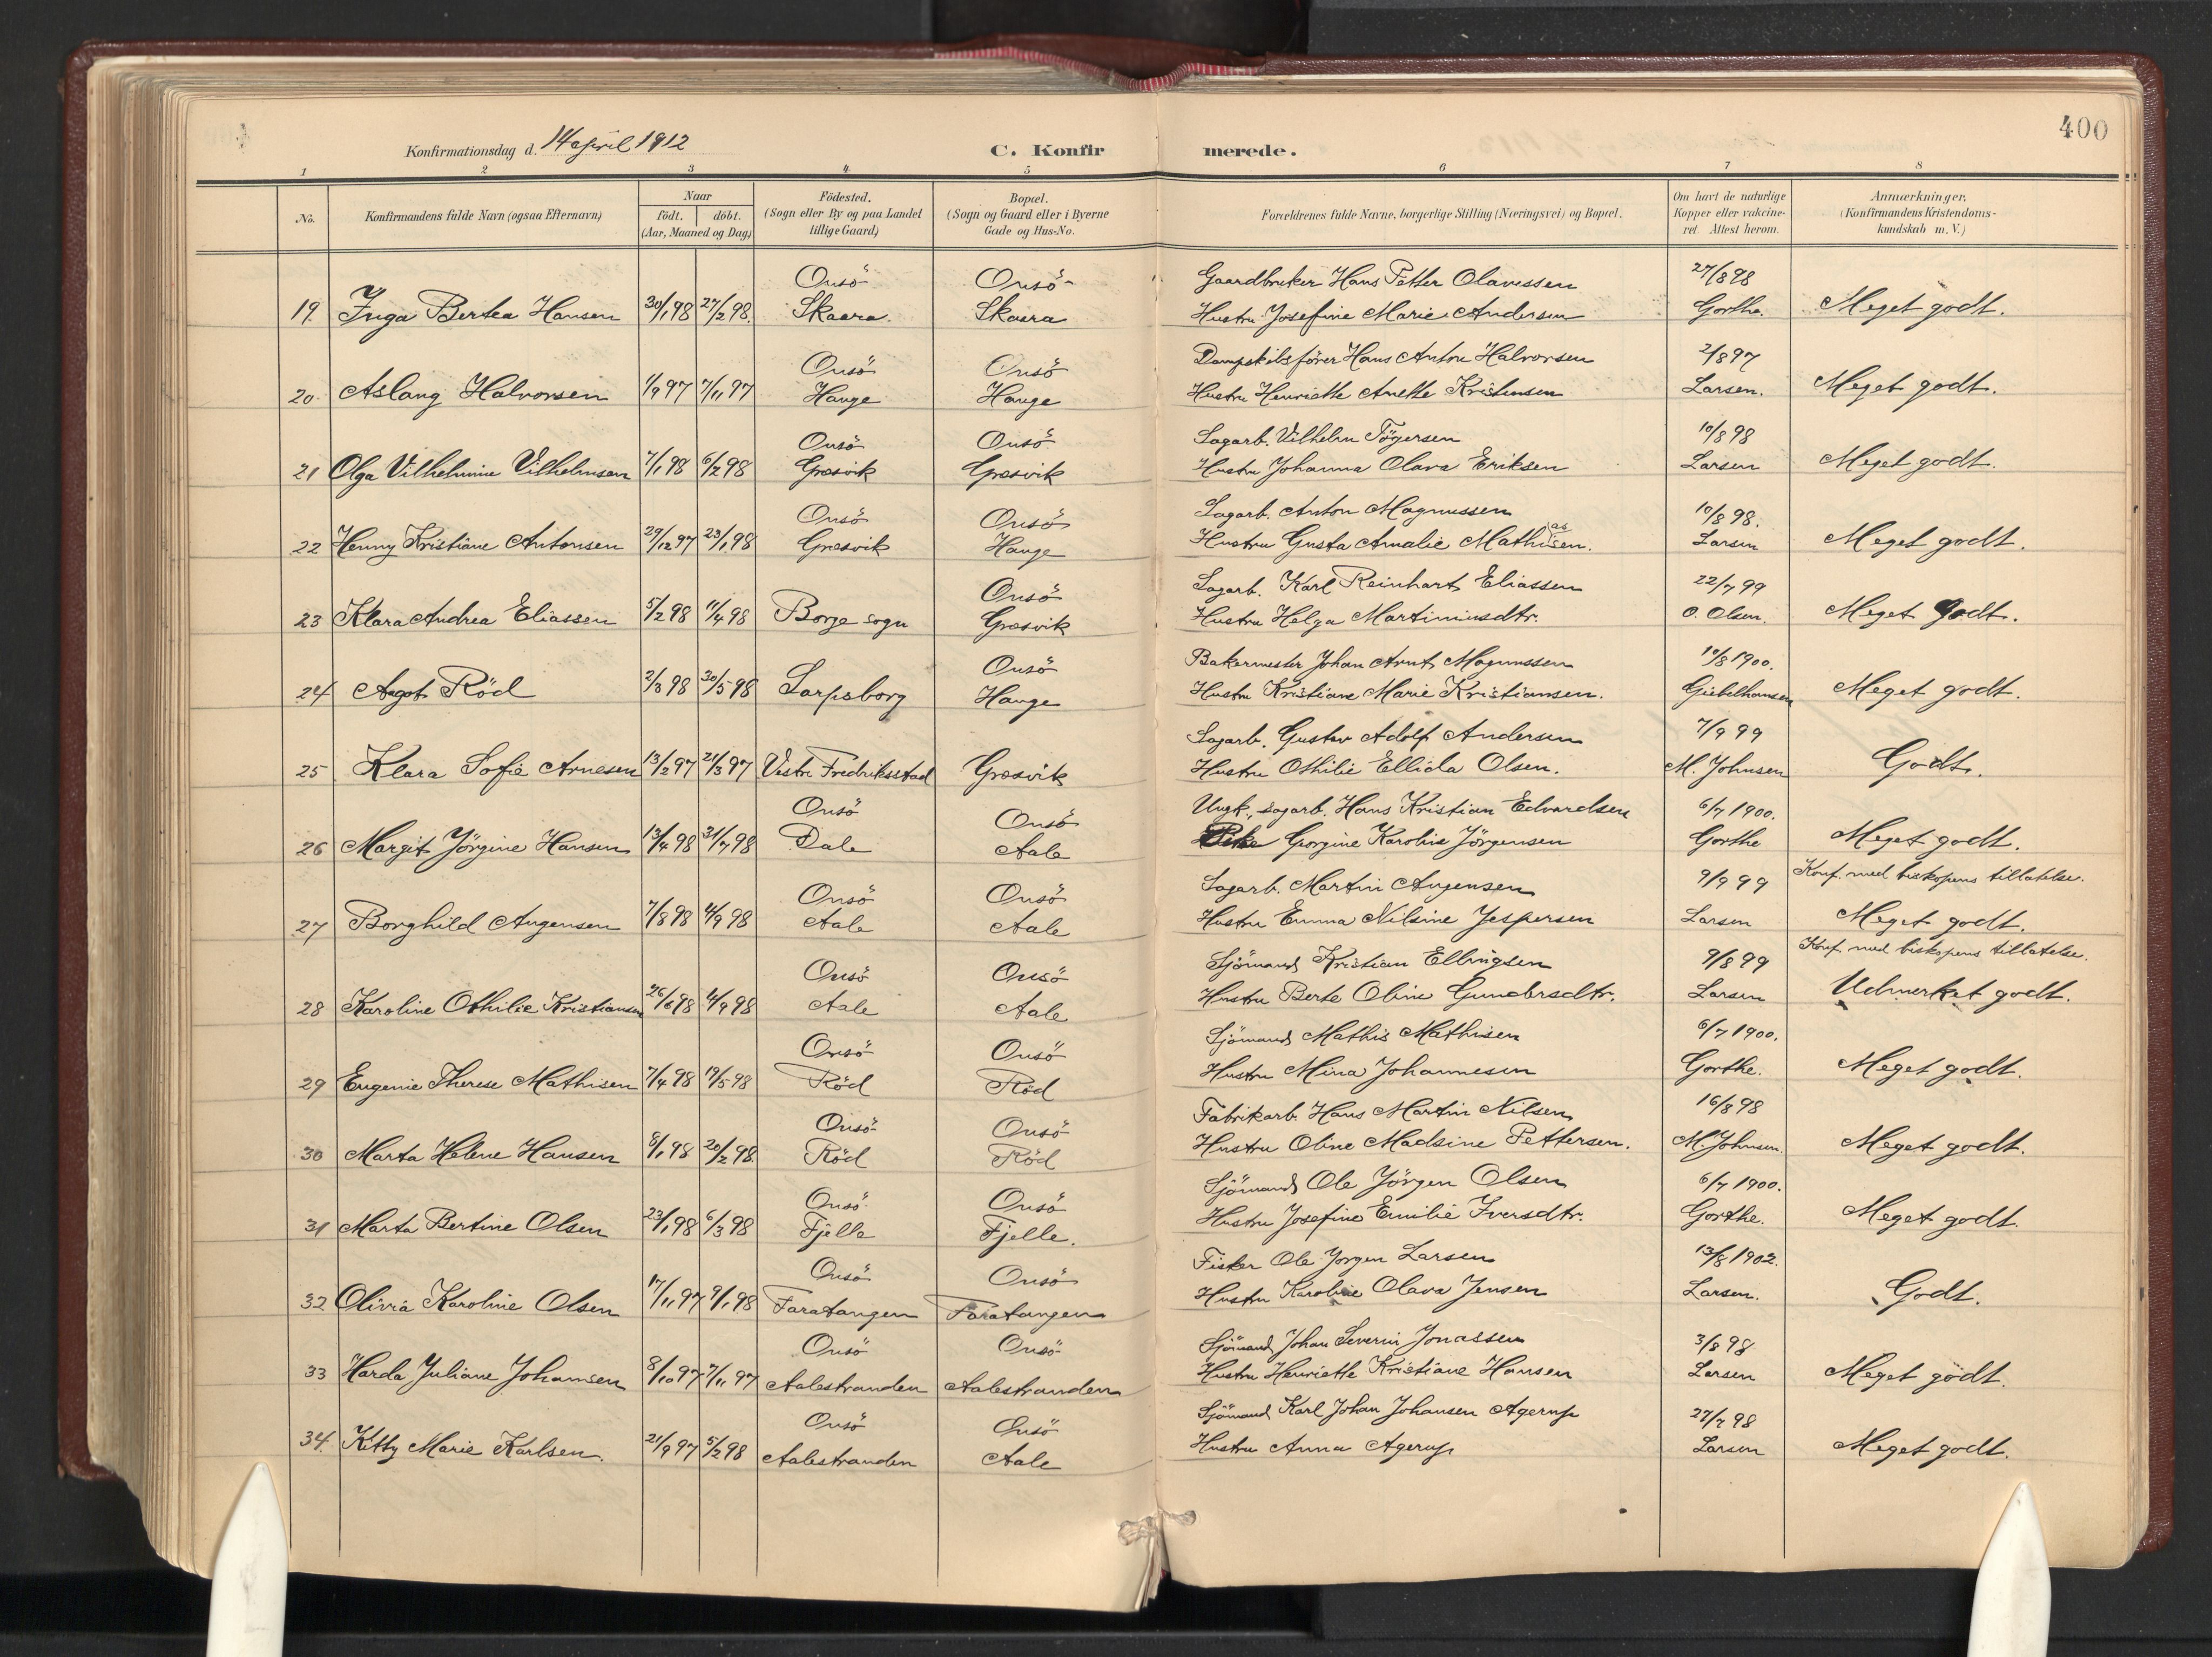 400
Konfirmationsdag d. 14 april 1912
C. Konfirmerede.
1 2 3 4 5 6 7 8
No.
Konfirmandens fulde Navn (ogsaa Efternavn)
Naar
födt. döbt.
(Aar, Maaned og Dag)
Födested.
(Sogn eller By og paa Landet
tillige Gaard)
Bopæl.
(Sogn og Gaard eller i Byerne
Gade og Hus-No.
Forældrenes fulde Navne, borgerlige Stilling (Næringsvei) og Bopæl.
Om havt de naturlige
Kopper eller vakcine-
ret. Attest herom.
Anmærkninger.
(Konfirmandens Kristendoms-
kundskab m. V.)
Onsö Onsö Gaardbruker Hans Petter Olavessen 27/8 98
19 Inga Bertea Hansen 30/1 98 27/2 98. Skaara. Skaara Hustru Josefine Marie Andersen Gorthe. Meget godt.
Onsö Onsö Dampskibsförer Hans Anton Halvorsen 2/8 97
20 Aslaug Halvorsen 1/9 97 7/11 97 Hauge Hauge Hustru Henriette Anette Kristensen Larsen. Meget godt.
Onsö Onsö Sagarb. Vilhelm Tögersen 10/8 98
21 Olga Vilhelmine Vilhelmsen 7/1 98 6/2 98 Græsvik Græsvik Hustru Johanna Olava Eriksen Larsen Meget godt.
Onsö Onsö Sagarb. Anton Magnussen 10/8 98.
22 Henny Kristiane Antonsen 29/12 97 23/1 98 Græsvik Hauge Hustru Gusta Amalie Mathisen. (as) Larsen Meget godt.
Onsö Sagarb. Karl Reinhart Eliassen 22/7 99
23 Klara Andrea Eliassen 5/2 98 11/4 98 Borge sogn Græsvik Hustru Helga Martiniusdtr. O. Olsen. Meget Godt.
Onsö Bakermester Johan Arnt Magnussen 10/8 1900.
24 Aagot Röd 2/3 98 30/5 98 Sarpsborg Hauge Hustru Kristiane Marie Kristiansen. Giebelhausen Meget godt.
Sagarb. Gustav Adolf Andersen 7/9 99
25 Klara Sofie Arnesen 13/2 97 21/3 97 Vestre Fredriksstad Græsvik Hustru Othilie Ellida Olsen. M. Johnsen Godt.
Onsö Onsö Ungk., sagarb. Hans Kristian Edvardsen 6/7 1900.
26 Margit Jörgine Hansen 13/4 98 31/7 98 Dale Aale Pike Georgine Karoline Jörgensen Gorthe Meget godt.
Onsö Onsö Sagarb. Martin Augensen 9/9 99 Konf. med biskopens tillatelse.
27 Borghild Augensen 7/8 98 4/9 98 Aale Aale Hustru Emma Nilsine Jespersen Larsen Meget godt.
Onsö Onsö Sjömand Kristian Ellingsen 9/8 99 Konf. med biskopens tillatelse.
28 Karoline Othilie Kristiansen 26/6 98 4/9 98 Aale Aale Hustru Berte Oline Gundersdtr. Larsen Udmerket godt.
Onsö Onsö Sjömand Mathis Mathisen 6/7 1900.
29 Eugenie Therese Mathisen 7/4 98 19/5 98 Röd Röd Hustru Mina Johannesen Gorthe. Meget godt.
Onsö Onsö Fabrikarb. Hans Martin Nilsen 16/8 98
30 Marta Helene Hansen 8/1 98 20/2 98. Röd Röd Hustru Oline Madsine Pettersen. M. Johnsen. Meget godt.
Onsö Onsö Sjömand Ole Jörgen Olsen 6/7 1900.
31 Marta Bertine Olsen 23/1 98 6/3 98 Fjelle Fjelle. Hustru Josefine Emilie Iversdtr. Gorthe. Meget godt.
Onsö Onsö Fisker Ole Jorgen Larsen 13/8 1902.
32 Olivia Karoline Olsen 17/11 97 9/1 98 Faratangen Faratangen Hustru Karoline Olava Jensen Larsen. Godt.
Onsö Onsö Sjömand Johan Severin Jonassen 3/8 98
33 Harda Juliane Johansen 8/10 97 7/11 97 Aalestranden Aalestranden Hustru Henriette Kristiane Hansen Larsen Meget godt.
Onsö Onsö Sjömand Karl Johan Johansen Agerup 27/7 98
34. Kitty Marie Karlsen. 21/9 97 5/2 98 Aalestranden Aale Hustru Anna Agerup Larsen Meget godt.